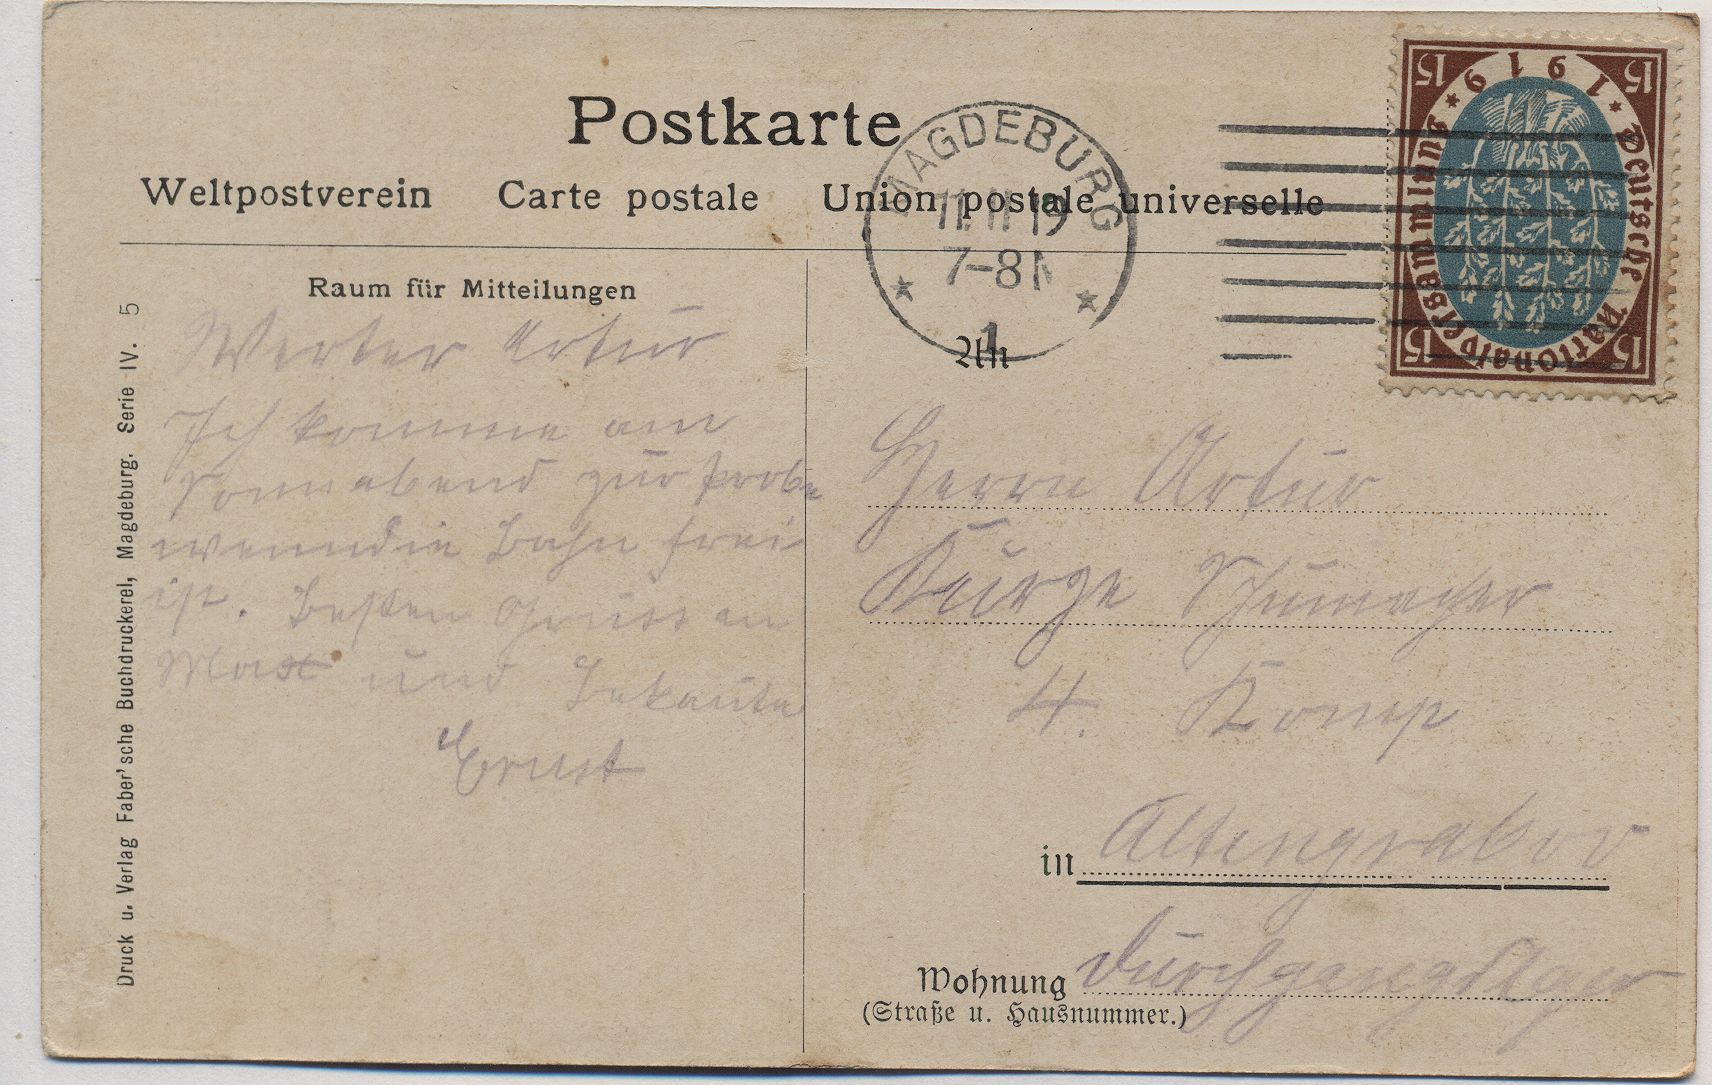 Postkarte
Weltpostverein Carte postale Union postale universelle
MAGDEBURG
11.11.19
7-8 N
1
15 15
1919 * Deutsche Nationalversammlung *
15 15
Raum für Mitteilungen
Werter Artur
Ich komme am
Sonnabend zur Probe
wenn die Bahn frei
ist. Besten Gruss an
Max und Bekannte
Ernst
Druck u. Verlag Faber'sche Buchdruckerei, Magdeburg. Serie IV. 5
An
Herrn Artur
Kurze
4. Komp
in Altengrabow
Wohnung Durchgangslager
(Straße u. Hausnummer.)